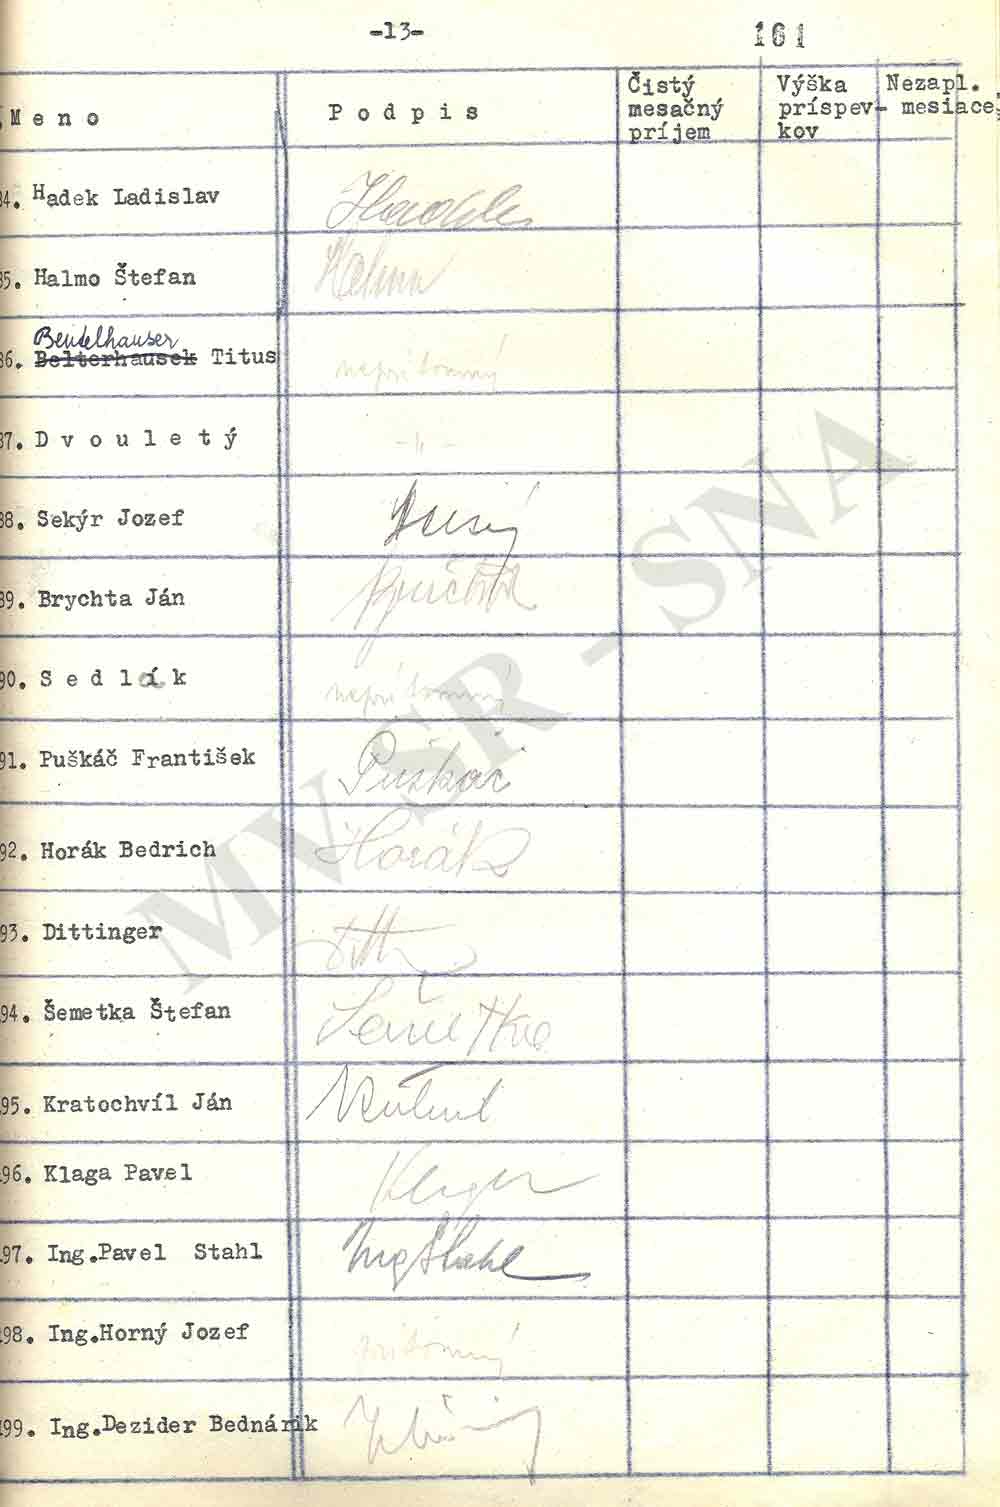 -13-
161
Meno
Podpis
Čistý
mesačný
príjem
Výška
príspev-
kov
Nezapl.
mesiace
84. Hadek Ladislav
85. Halmo Štefan Halmo
Beutelhauser
86. Belterhausek Titus neprítomný
87. Dvouletý -"-
88. Sekýr Jozef
89. Brychta Ján
90. Sedlák neprítomný
91. Puškáč František Puškáč
92. Horák Bedrich Horák
93. Dittinger
94. Šemetka Štefan Šemetka
95. Kratochvíl Ján
96. Klaga Pavel
97. Ing.Pavel Stahl Ing Stahl
98. Ing.Horný Jozef prítomný
99. Ing.Dezider Bednárik
MV SR - SNA